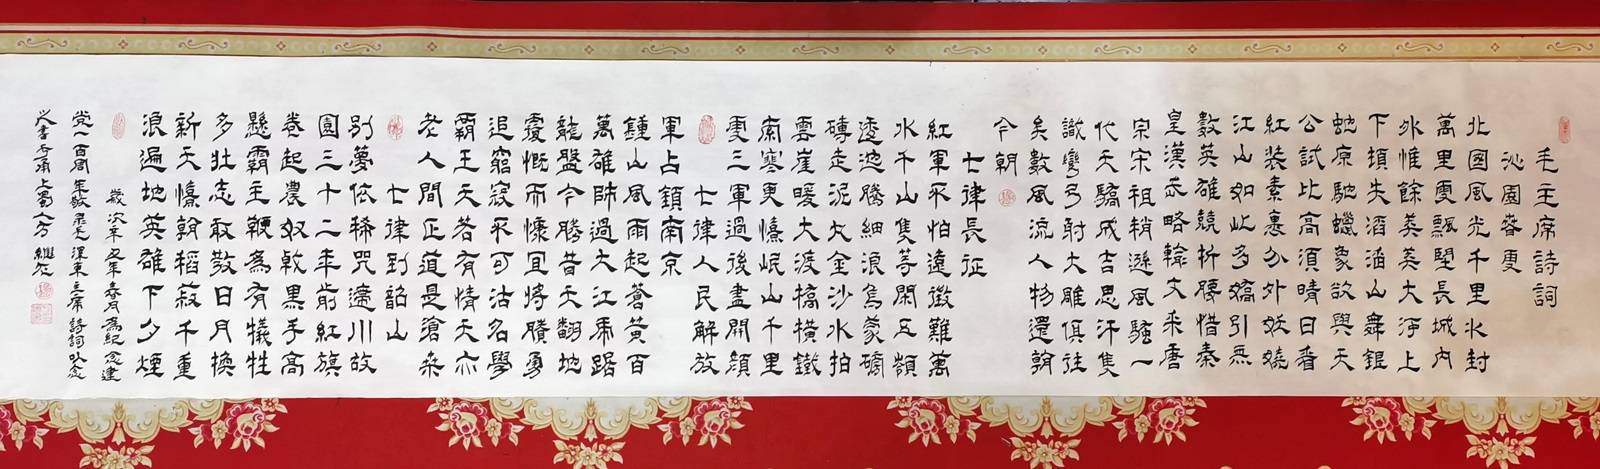 毛主席詩詞
沁園春雪
北國風光千里冰封
萬里雪飄望長城內
外惟餘莽莽大河上
下頓失滔滔山舞銀
蛇原馳蠟象欲與天
公試比高須晴日看
紅裝素裹分外妖嬈
江山如此多嬌引無
數英雄競折腰惜秦
皇漢武略輸文采唐
宗宋祖稍遜風騷一
代天驕成吉思汗隻
識彎弓射大雕俱往
矣數風流人物還看
今朝
七律長征
紅軍不怕遠徵難萬
水千山隻等閑五嶺
逶迤騰細浪烏蒙磅
礴走泥丸金沙水拍
雲崖暖大渡橋橫鐵
索寒更憙岷山千里
雪三軍過後盡開顏
七律人民解放
軍占領南京
鍾山風雨起蒼黃百
萬雄師過大江虎踞
龍盤今勝昔天翻地
覆慨而慷宜將賸勇
追窮寇不可沽名學
霸王天若有情天亦
老人間正道是滄桑
七律到韶山
別夢依稀咒逝川故
園三十二年前紅旗
卷起農奴戟黑手高
懸霸主鞭為有犧牲
多壯志敢教日月換
新天憙看稻菽千重
浪遍地英雄下夕煙
歲次辛丑年春月為紀念建
党一百周年敬录毛澤東主席詩詞以念
之書